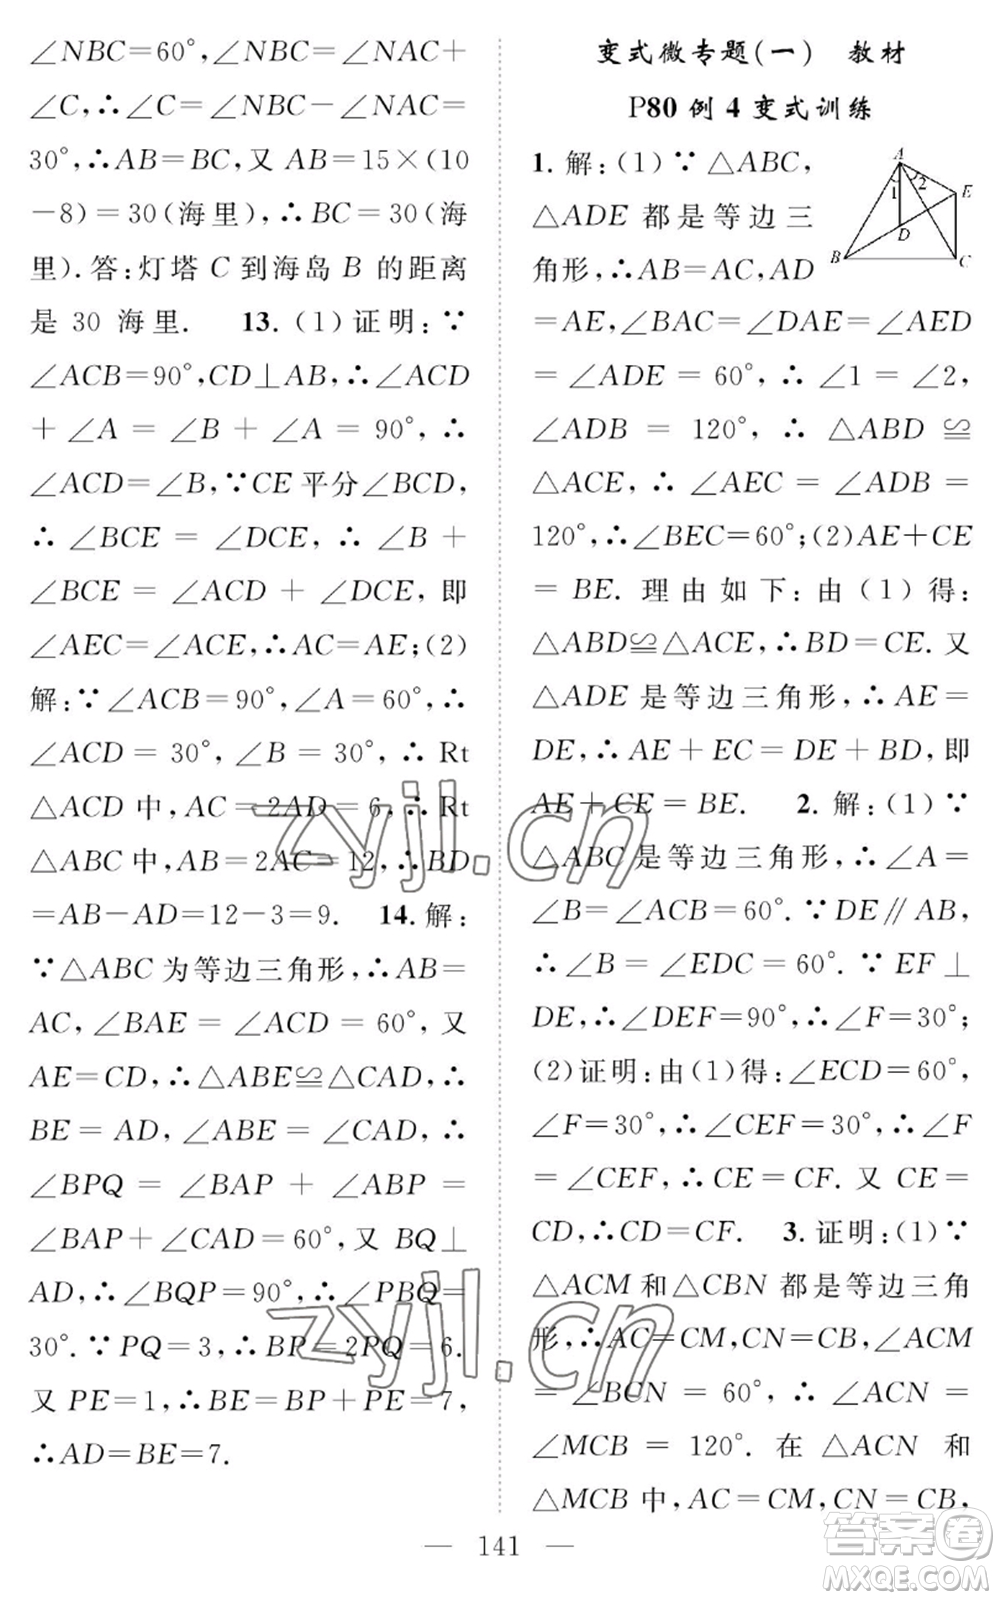 ∠NBC=60°,∴∠NBC=∠NAC+
∠C,∴∠C=∠NBC-∠NAC=
30°,∴AB=BC,又 AB=15×(10
-8)=30(海里),∴BC=30(海
里).答:灯塔 C 到海岛 B 的距离
是 30 海里. 13.(1)证明:∵
∠ACB=90°,CD⊥AB,∴∠ACD
+∠A=∠B+∠A=90°,∴
∠ACD=∠B,∵CE平分∠BCD,
∴∠BCE=∠DCE,∴∠B+
∠BCE=∠ACD+∠DCE,即
∠AEC=∠ACE,∴AC=AE;(2)
解:∵∠ACB=90°,∠A=60°,∴
∠ACD=30°,∠B=30°,∴Rt
△ACD中,AC=2AD=6,∴Rt
△ABC中,AB=2AC=12,∴BD
=AB-AD=12-3=9. 14.解:
∵△ABC为等边三角形,∴AB=
AC,∠BAE=∠ACD=60°,又
AE=CD,∴△ABE≌△CAD,∴
BE=AD,∠ABE=∠CAD,∴
∠BPQ=∠BAP+∠ABP=
∠BAP+∠CAD=60°,又 BQ⊥
AD,∴∠BQP=90°,∴∠PBQ=
30°.∵PQ=3,∴BP=2PQ=6.
又 PE=1,∴BE=BP+PE=7,
∴AD=BE=7.
变式微专题(一) 教材
P80 例 4 变式训练
1.解:(1)∵△ABC,
△ADE都是等边三
角形,∴AB=AC,AD
=AE,∠BAC=∠DAE=∠AED
=∠ADE=60°,∴∠1=∠2,
∠ADB=120°,∴△ABD≌
△ACE,∴∠AEC=∠ADB=
120°,∴∠BEC=60°;(2)AE+CE
=BE.理由如下:由(1)得:
△ABD≌△ACE,∴BD=CE.又
△ADE是等边三角形,∴AE=
DE,∴AE+EC=DE+BD,即
AE+CE=BE. 2.解:(1)∵
△ABC是等边三角形,∴∠A=
∠B=∠ACB=60°.∵DE∥AB,
∴∠B=∠EDC=60°.∵EF⊥
DE,∴∠DEF=90°,∴∠F=30°;
(2)证明:由(1)得:∠ECD=60°,
∠F=30°,∴∠CEF=30°,∴∠F
=∠CEF,∴CE=CF.又CE=
CD,∴CD=CF. 3.证明:(1)∵
△ACM和△CBN都是等边三角
形,∴AC=CM,CN=CB,∠ACM
=∠BCN=60°,∴∠ACN=
∠MCB=120°.在△ACN 和
△MCB中,AC=CM,CN=CB,
A
1
2
E
D
B
C
zyjl.cn
zyjl.cn
— 141 —
答案圈
MXQE.COM